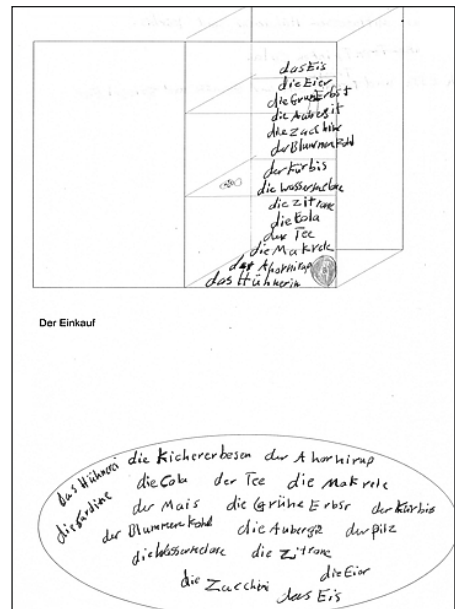 das Eis
die Eier
die Grün Erbst
die Aubergit
die Zacchini
der Blummenkohl
der Kürbis
die Wassermelone
die Zitrone
die Cola
der Tee
die Makrele
der Ahornirup
das Hühnerin
Der Einkauf
das Hühnerei die Kichererbesen der Ahornirup
die Sardine die Cola der Tee die Makrele
der Mais die Grühe Erbsr der Kürbis
der Blummenkohl die Aubergr der Pilz
die Wassermelone die Zitrone
die Zacchini die Eier
das Eis